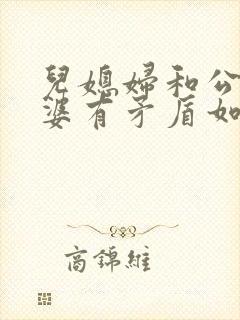 兒媳婦和公
婆有矛盾如
高錦維